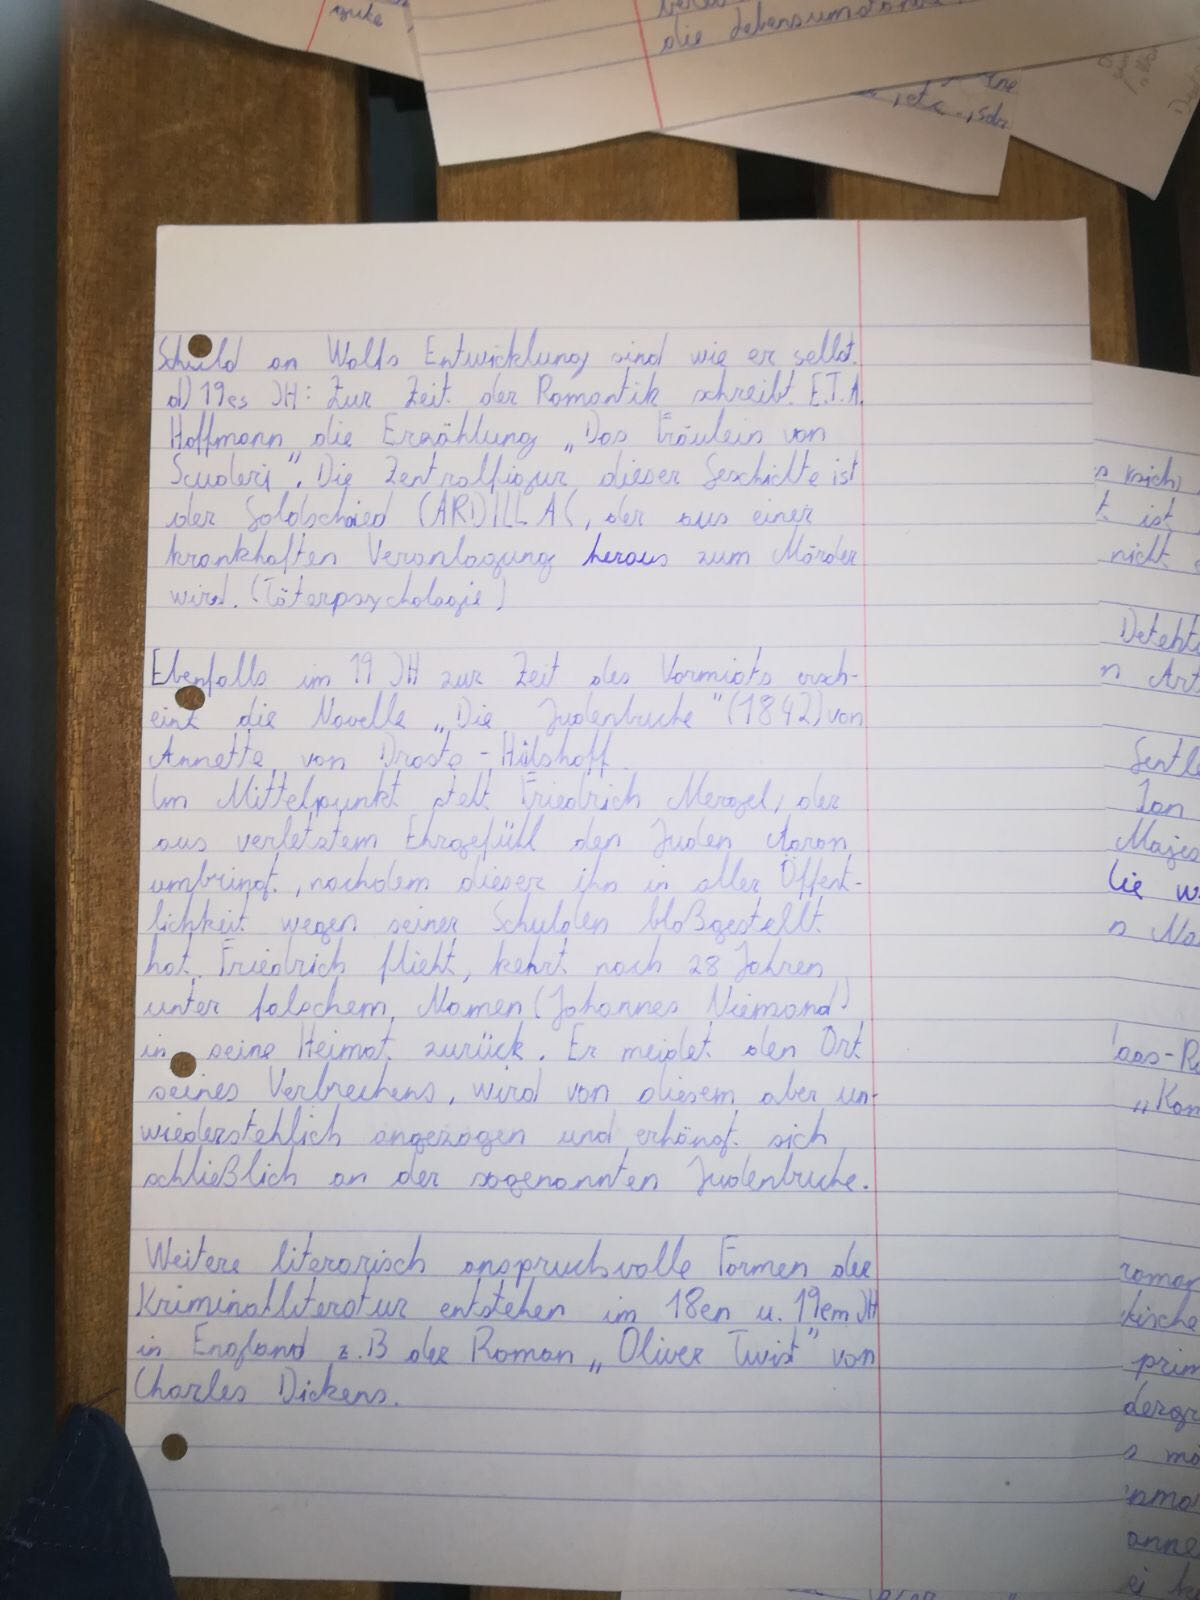 die Lebensumstände
, etc., sdr
Schuld an Wolfs Entwicklung sind wie er selbst.
d) 19es JH: Zur Zeit der Romantik schreibt E.T.A.
Hoffmann die Erzählung „Das Fräulein von
Scuderi". Die Zentralfigur dieser Geschichte ist
der Goldschmied CARDILLAC, der aus einer
krankhaften Veranlagung heraus zum Mörder
wird. (Täterpsychologie)
Ebenfalls im 19 JH zur Zeit des Vormärz ersch-
eint die Novelle „Die Judenbuche" (1842) von
Annette von Droste-Hülshoff.
Im Mittelpunkt steht Friedrich Mergel, der
aus verletztem Ehrgefühl den Juden Aaron
umbringt, nachdem dieser ihn in aller Öffent-
lichkeit wegen seiner Schulden bloßgestellt
hat. Friedrich flieht, kehrt nach 28 Jahren
unter falschem Namen (Johannes Niemand)
in seine Heimat zurück. Er meidet den Ort
seines Verbrechens, wird von diesem aber un-
wiederstehlich angezogen und erhängt sich
schließlich an der sogenannten Judenbuche.
Weitere literarisch anspruchsvolle Formen der
Kriminalliteratur entstehen im 18en u. 19em JH
in England z.B der Roman „Oliver Twist" von
Charles Dickens.
t ist
nicht